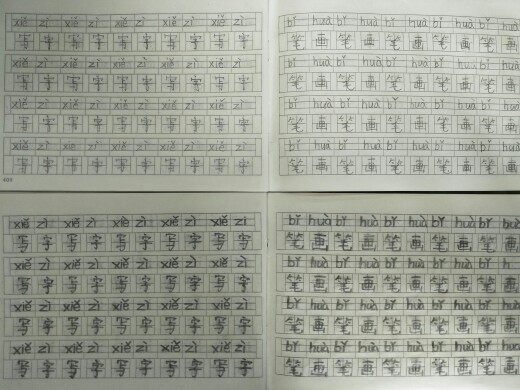 xiě zì xiě zì xiě zì xiě zì xiě zì
写字写字写字写字写字
xiě zì xiě zì xiě zì xiě zì xiě zì
写字写字写字写字写字
xiě zì xiě zì xiě zì xiě zì xiě zì
写字写字写字写字写字
xiě zì xiě zì xiě zì xiě zì xiě zì
写字写字写字写字写字
bǐ huà bǐ huà bǐ huà bǐ huà bǐ huà
笔画笔画笔画笔画笔画
bǐ huà bǐ huà bǐ huà bǐ huà bǐ huà
笔画笔画笔画笔画笔画
bǐ huà bǐ huà bǐ huà bǐ huà bǐ huà
笔画笔画笔画笔画笔画
bǐ huà bǐ huà bǐ huà bǐ huà bǐ huà
笔画笔画笔画笔画笔画
xiě zì xiě zì xiě zì xiě zì xiě zì
写字写字写字写字写字
xiě zì xiě zì xiě zì xiě zì xiě zì
写字写字写字写字写字
xiě zì xiě zì xiě zì xiě zì xiě zì
写字写字写字写字写字
xiě zì xiě zì xiě zì xiě zì xiě zì
写字写字写字写字写字
bǐ huà bǐ huà bǐ huà bǐ huà bǐ huà
笔画笔画笔画笔画笔画
bǐ huà bǐ huà bǐ huà bǐ huà bǐ h
笔画笔画笔画笔画笔画
bǐ huà bǐ huà bǐ huà bǐ huà bǐ huà
笔画笔画笔画笔画笔画
bǐ huà bǐ huà bǐ huà bǐ huà bǐ huà
笔画笔画笔画笔画笔画